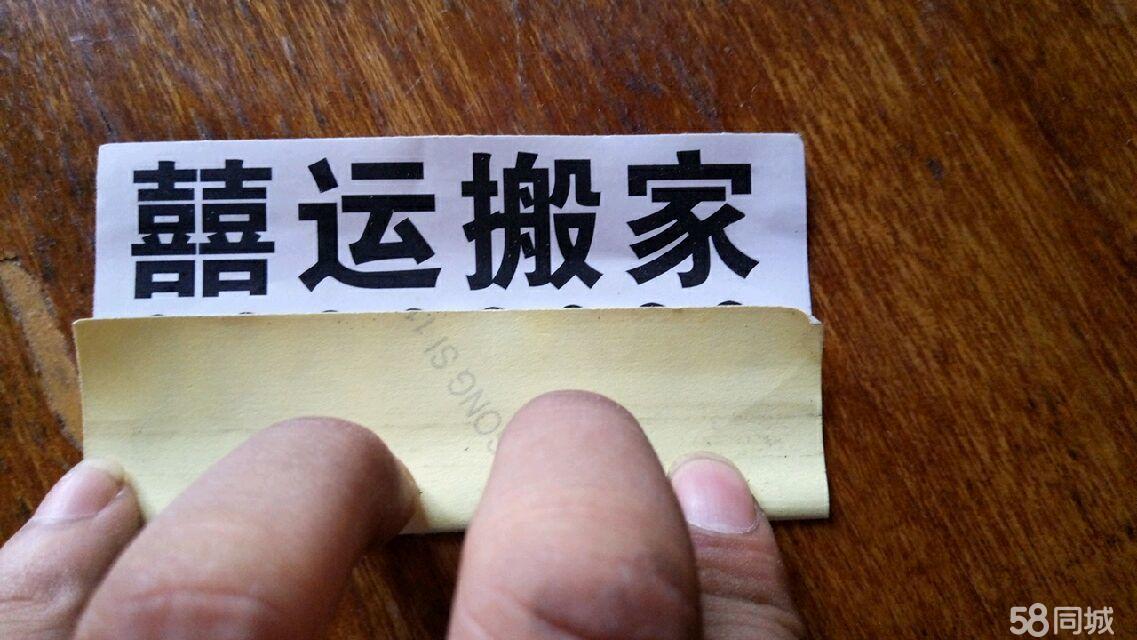 囍运搬家
GONG SI
58同城